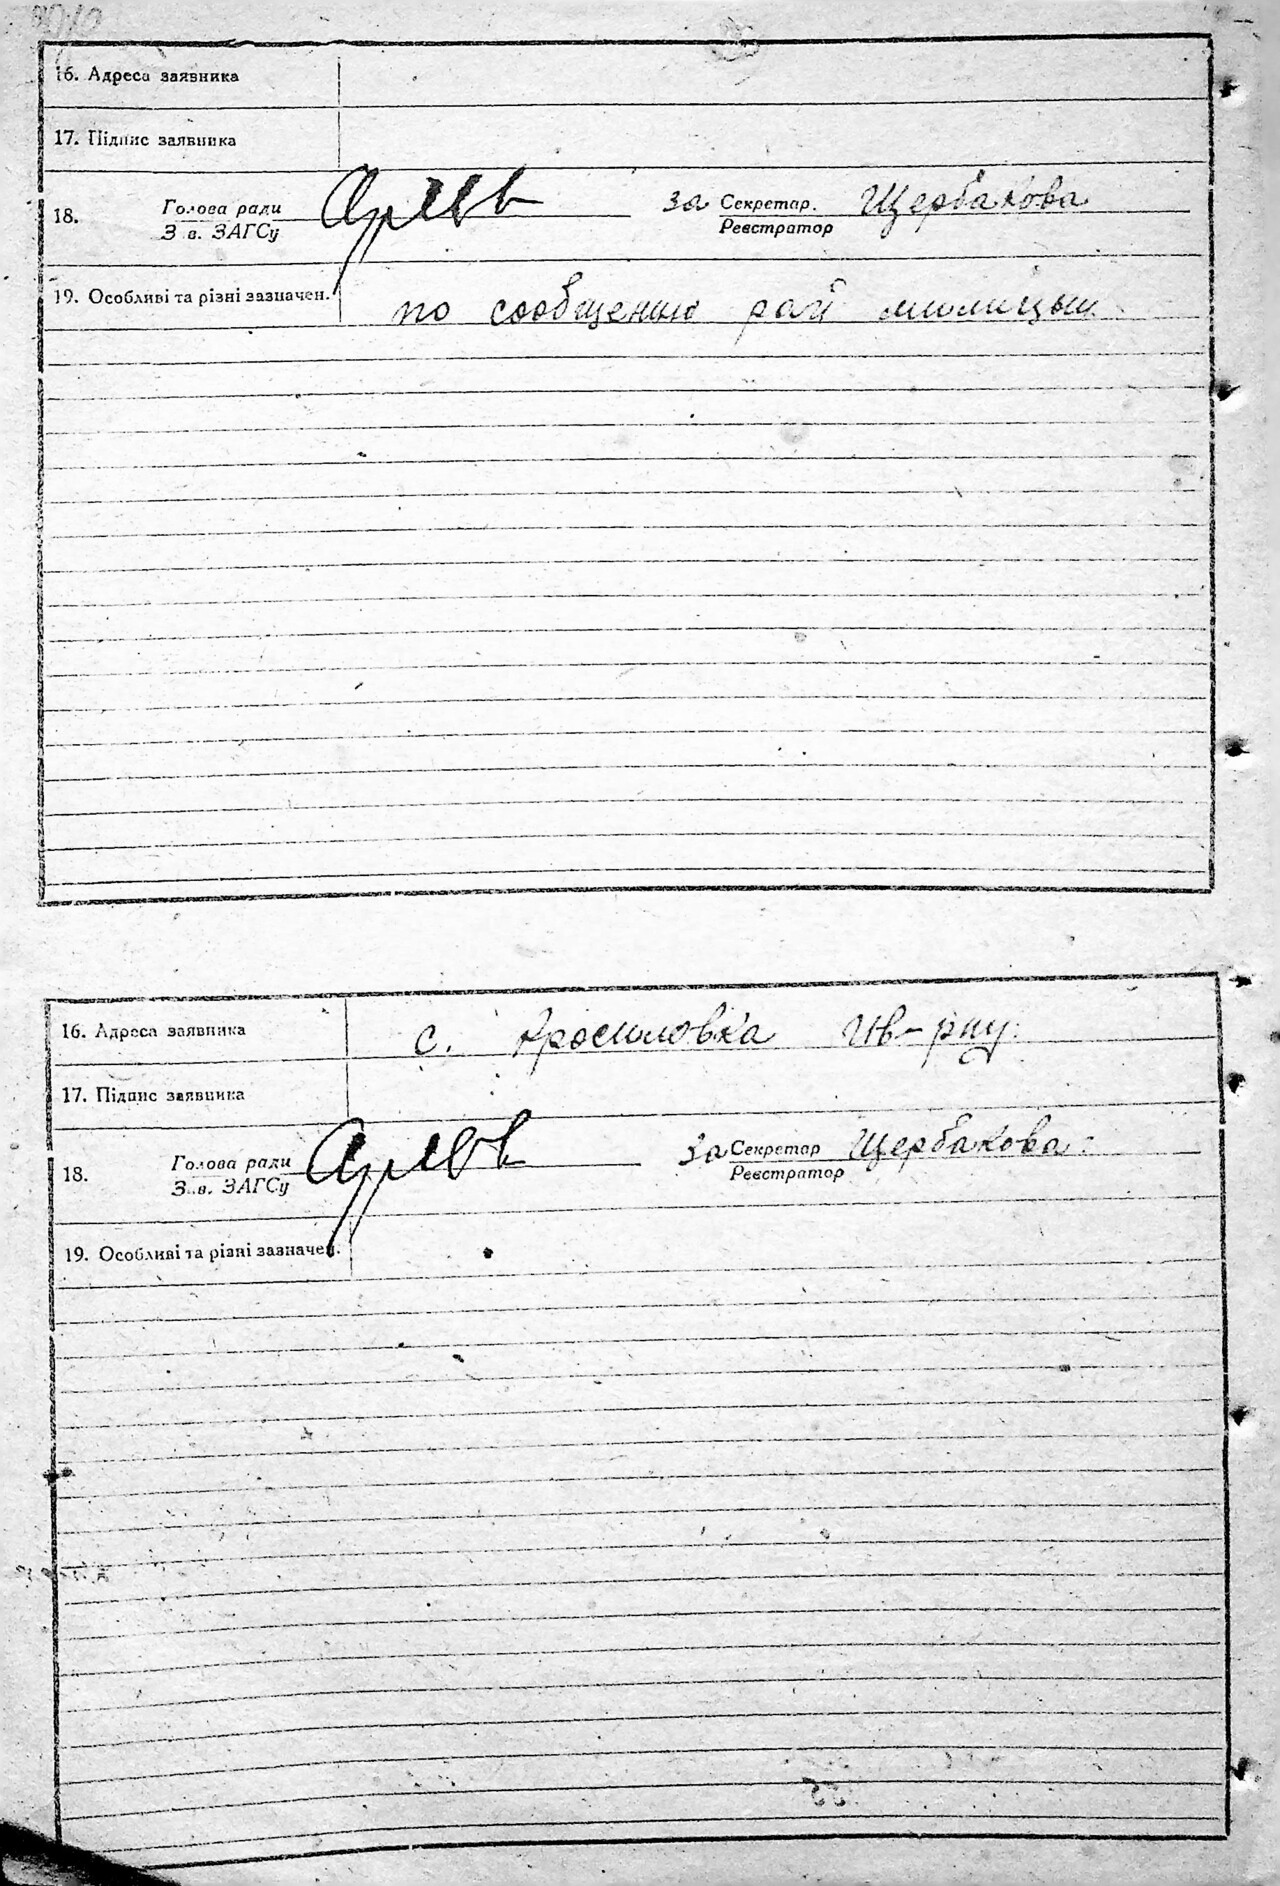 16. Адреса заявника
17. Підпис заявника
18. Голова ради за Секретар. Щербакова
З в. ЗАГСу Реєстратор
19. Особливі та різні зазначен. по сообщению рай милиции
16. Адреса заявника с.
17. Підпис заявника
18. Голова ради за Секретар Щербакова
З.в. ЗАГСу Реєстратор
19. Особливі та різні зазначен.